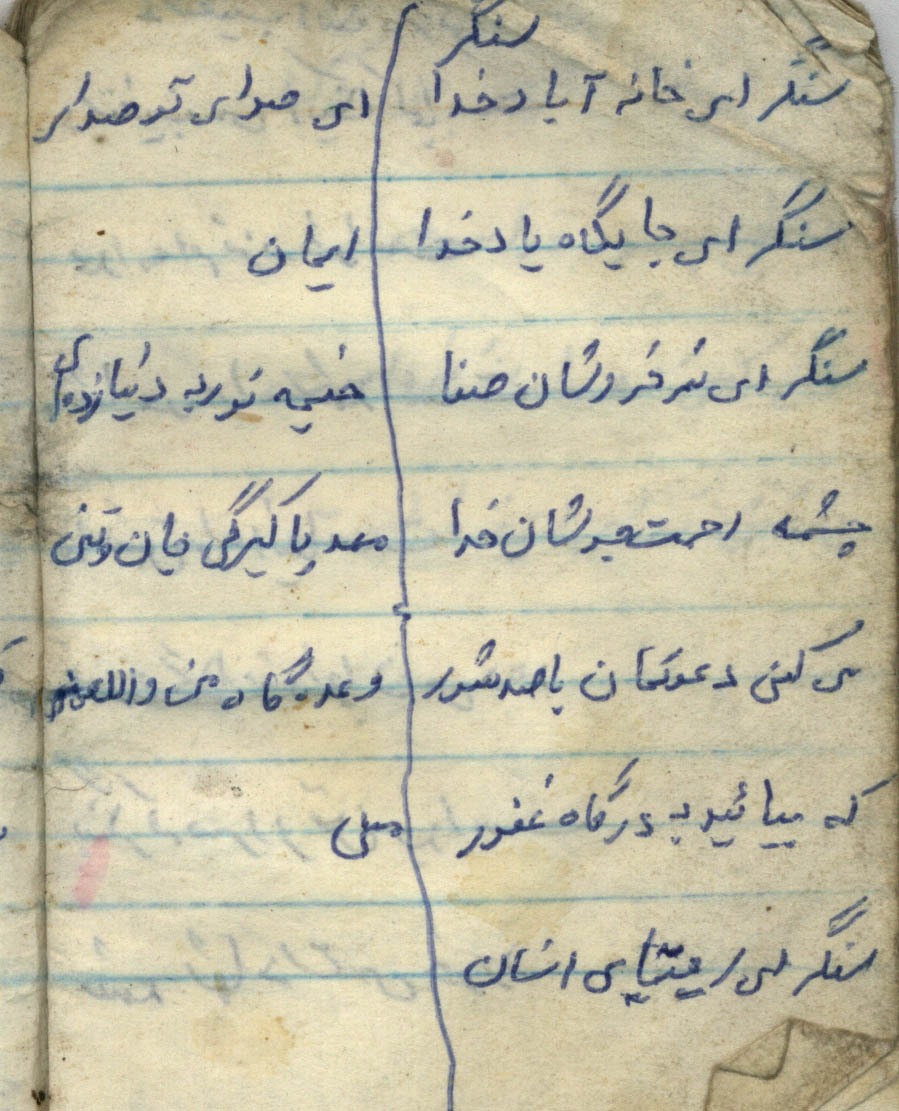 سنگر
سنگر ای خانه آباد خدا
سنگر ای جایگاه یاد خدا
سنگر ای فروشان صفا
چشمه رحمت جوشان خدا
می کنی دعوتمان با صد شور
که بیائید به درگاه غفور
سنگر ای انسان
ای صدای تو صدای
ایمان
خیمه نور به دنیا زده ای
مهد پاکیزگی جان و تنی
وعده گاه من و
منی